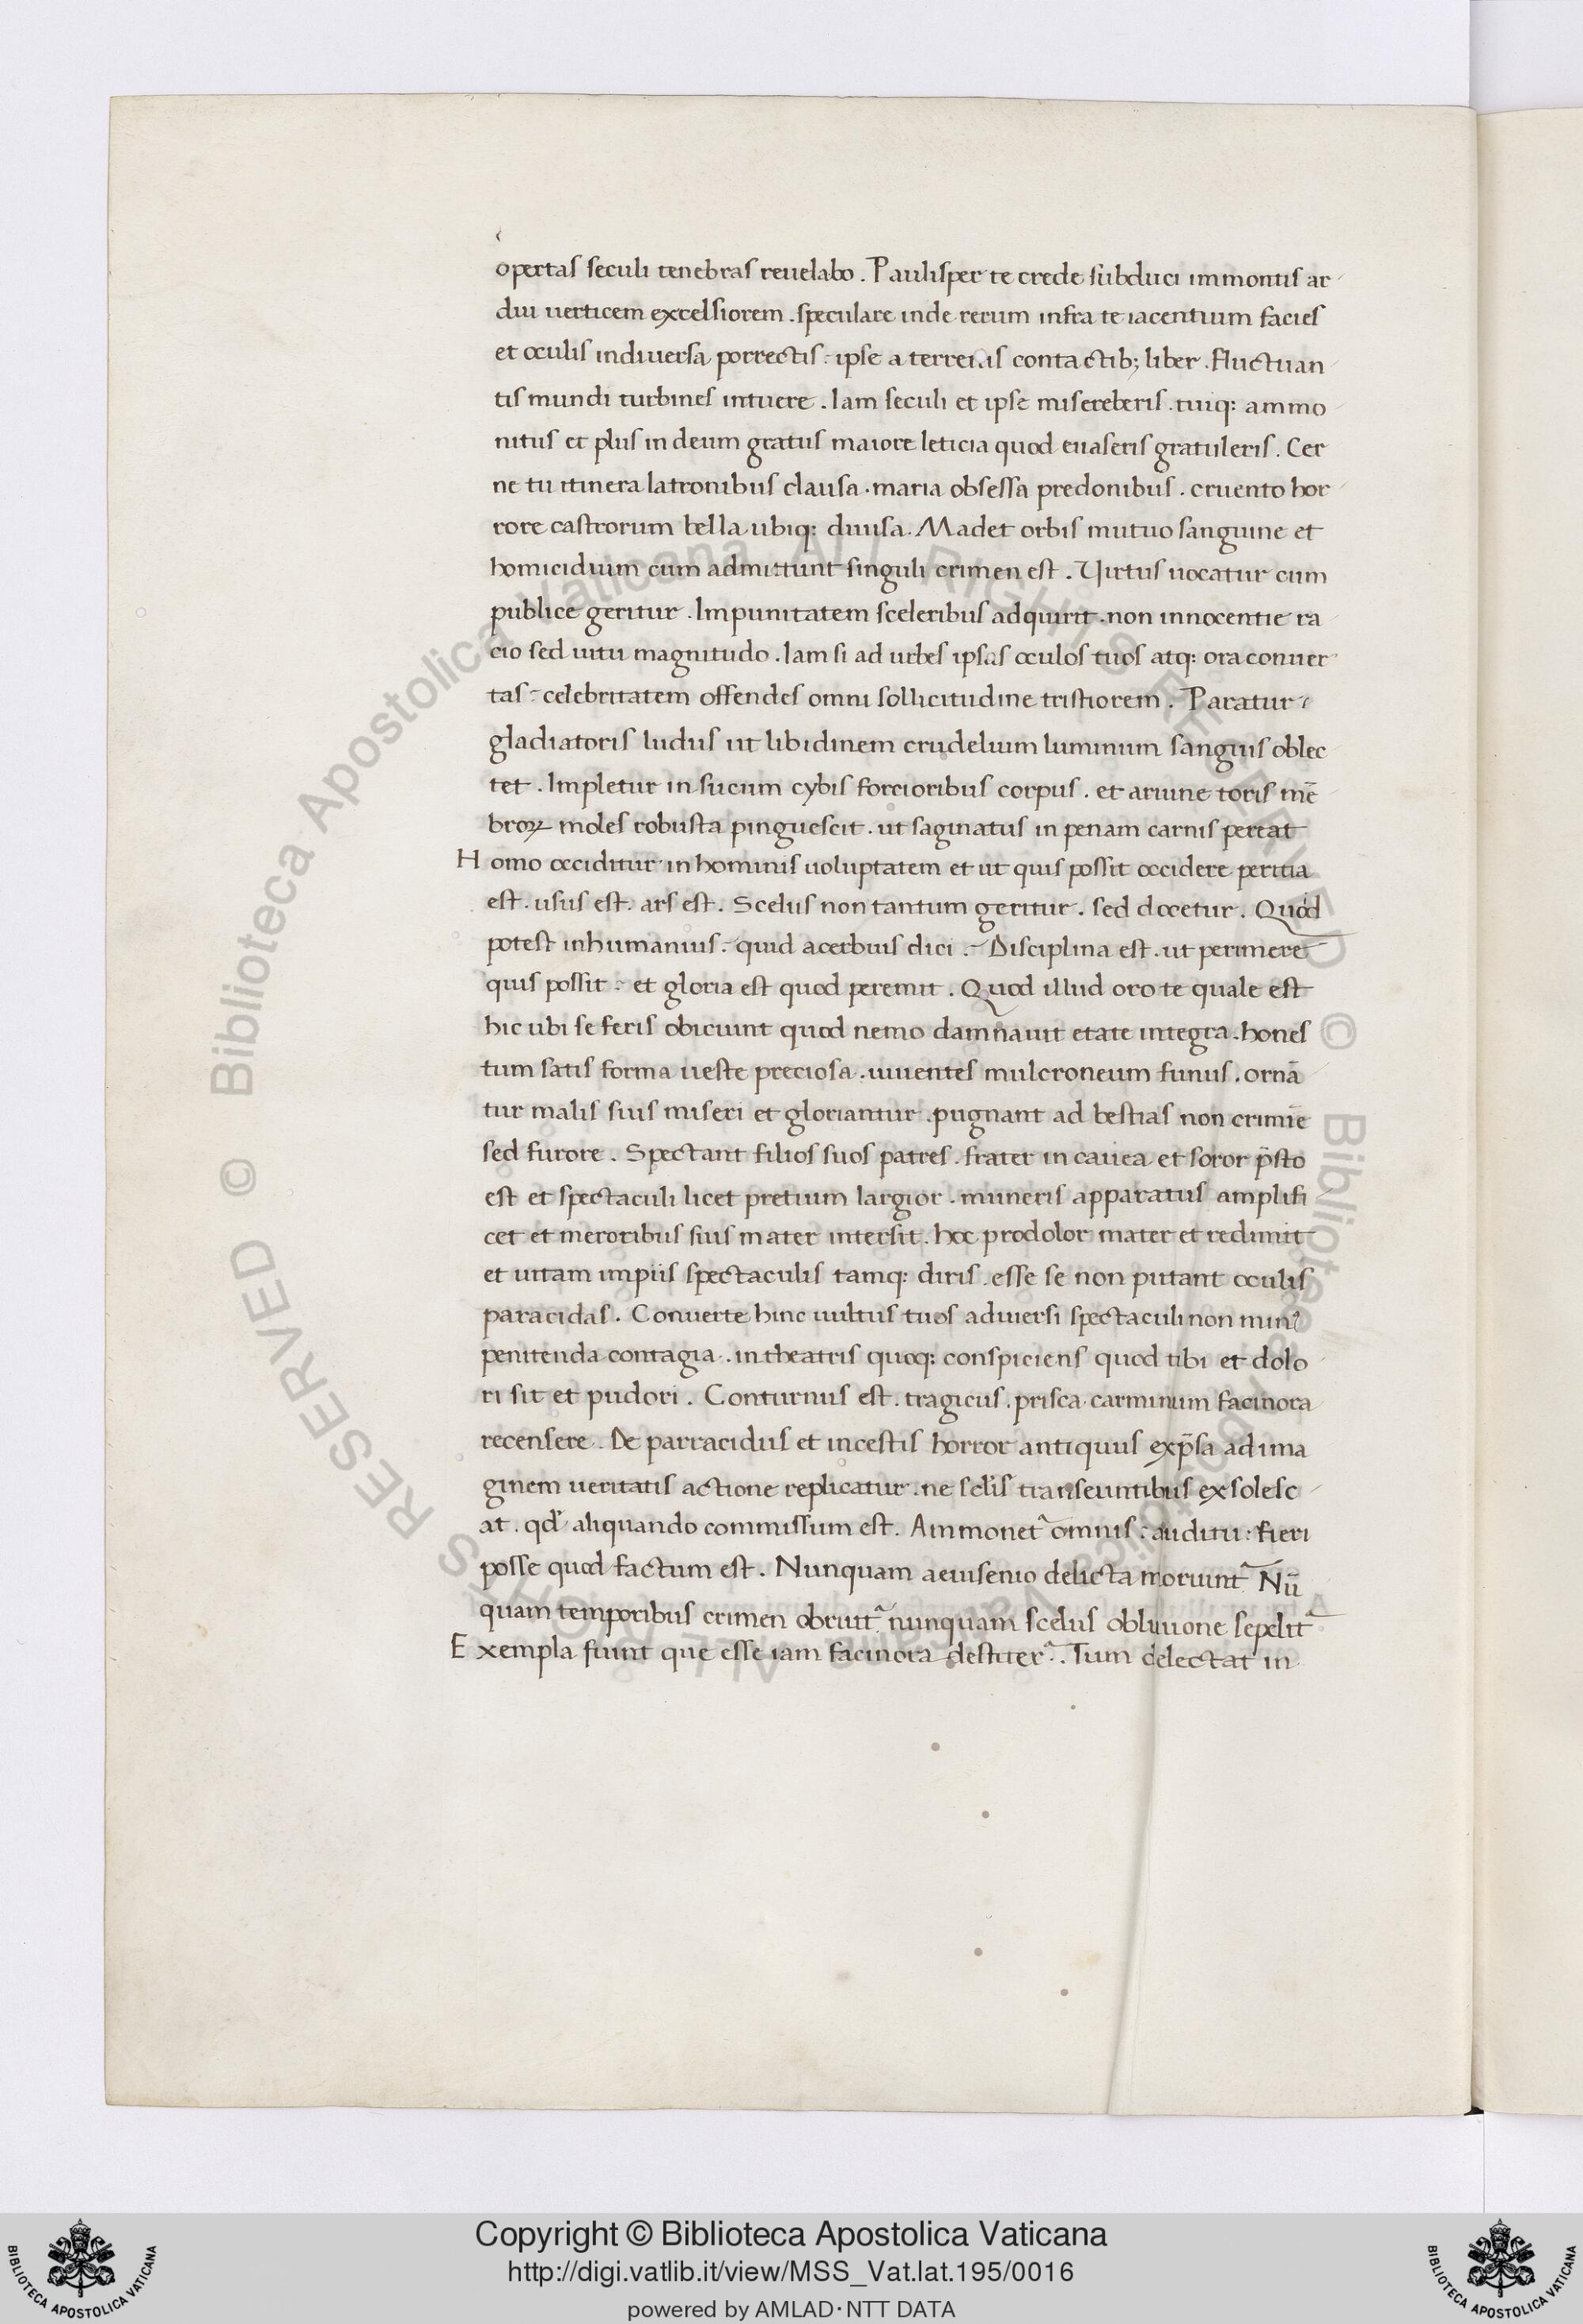 opertas seculi tenebras reuelabo. Paulisper te crede subduci immontis ar
dui uerticem excelsiorem. speculare inde rerum infra te iacentium facies
et oculis indiuersa porrectis: ipse a terrenis contactib; liber. fluctuan
tis mundi turbines intuere. Iam seculi et ipse misereberis. tuiq: ammo
nitus et plus in deum gratus maiore leticia quod euaseris gratuleris. Cer
ne tu itinera latronibus clausa. maria obsessa predonibus. cruento hor
rore castrorum bella ubiq: diuisa. Madet orbis mutuo sanguine et
homicidium cum admittunt singuli crimen est. Uirtus uocatur cum
publice geritur. Impunitatem sceleribus adquirit. non innocentie ra
cio sed uitii magnitudo. Iam si ad urbes ipsas oculos tuos atq: ora conuer
tas: celebritatem offendes omni sollicitudine tristiorem. Paratur
gladiatoris ludus ut libidinem crudelium luminum sanguis oblec
tet. Impletur in sucum cybis forcioribus corpus. et aruine toris mē
broꝝ moles robusta pinguescit. ut saginatus in penam carnis pereat
Homo occiditur in hominis uoluptatem et ut quis possit occidere peritia
est. usus est. ars est. Scelus non tantum geritur. sed docetur. Quod
potest inhumanius: quid acerbius dici. Disciplina est. ut perimere
quis possit: et gloria est quod peremit. Quod illud oro te quale est
hic ubi se feris obiciunt quod nemo damnauit etate integra. hones
tum satis forma ueste preciosa. uiuentes mulcroneum funus. ornā
tur malis suis miseri et gloriantur. pugnant ad bestias non crimīe
sed furore. Spectant filios suos patres. frater in cauea et soror p̄sto
est et spectaculi licet pretium largior. muneris apparatus amplifi
cet et meroribus suis mater intersit. hoc prodolor mater et redimit
et uitam impiis spectaculis tamq: diris. esse se non putant oculis
paracidas. Conuerte hinc uultus tuos adiuersi spectaculi non min⁹
penitenda contagia. in theatris quoq: conspiciens quod tibi et dolo
ri sit et pudori. Conturnus est. tragicus. prisca carminum facinora
recensere. De parracidiis et incestis horror antiquus exp̄sa ad ima
ginem ueritatis actione replicatur. ne sclis transeuntibus exsolesc
at. qd aliquando commissum est. Ammonet᷑ omnis: auditu: fieri
posse quod factum est. Nunquam aeuisenio delicta moriunt᷑ Nū
quam temporibus crimen obruit᷑ nunquam scelus obliuione sepelit᷑
Exempla fiunt que esse iam facinora destiter᷑. Tum delectat in
Copyright © Biblioteca Apostolica Vaticana
http://digi.vatlib.it/view/MSS_Vat.lat.195/0016
powered by AMLAD·NTT DATA
BIBLIOTECA APOSTOLICA VATICANA
BIBLIOTECA APOSTOLICA VATICANA
© Biblioteca Apostolica Vaticana ALL RIGHTS RESERVED
© Biblioteca Apostolica Vaticana ALL RIGHTS RESERVED